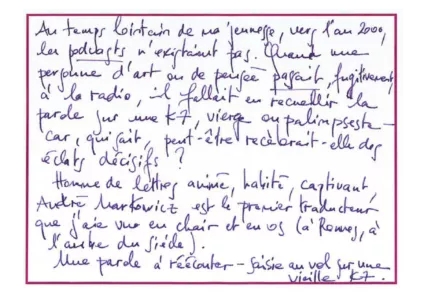 Au temps lointain de ma jeunesse, vers l'an 2000,
les podcasts n'existaient pas. Quand une
personne d'art ou de pensée passait, fugitivement,
à la radio, il fallait en recueillir la
parole sur une K7, vierge ou palimpseste –
car, qui sait, peut-être recèlerait-elle des
éclats décisifs ?
Homme de lettres animé, habité, captivant,
André Markowicz est le premier traducteur
que j'aie vu en chair et en os (à Rennes, à
l'aube du siècle).
Une parole à réécouter – saisie au vol sur une
vieille K7.